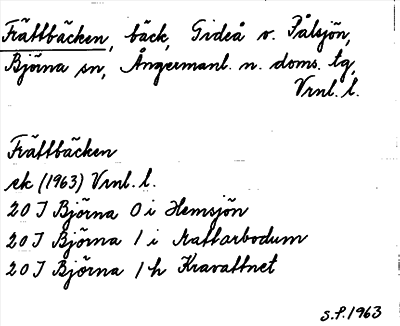 Frättbäcken, bäck, Gideå v. Pålsjön,
Björna sn, Ångermanl. n. doms. tg,
Vrnl. l.
Frättbäcken
ek (1963) Vrnl. l.
20 I Björna 0 i Hemsjön
20 I Björna 1 i Mattarbodum
20 I Björna 1 h Kravattnet
S.P. 1963